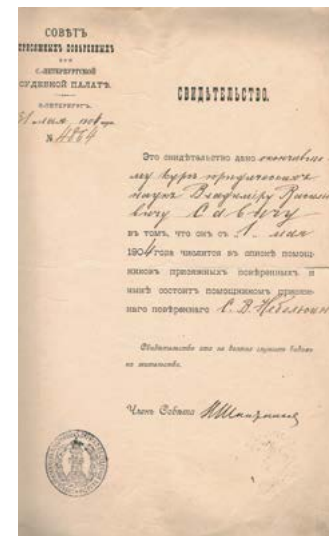 СОВѢТЪ
ПРИСЯЖНЫХЪ ПОВѢРЕННЫХЪ
ПРИ
С.-ПЕТЕРБУРГСКОЙ
СУДЕБНОЙ ПАЛАТѢ.
С.-ПЕТЕРБУРГЪ.
31 мая
№ 4864
СВИДѢТЕЛЬСТВО.
Это свидѣтельство дано окончивше
му курсъ юридическихъ
наукъ Владиміру Василье
вичу Савичу
въ томъ, что онъ съ 1 мая
1904 года числится въ спискѣ помощ-
никовъ присяжныхъ повѣренныхъ и
нынѣ состоитъ помощникомъ присяж-
наго повѣреннаго
Свидѣтельство это не должно служить видомъ
на жительство.
Членъ Совѣта